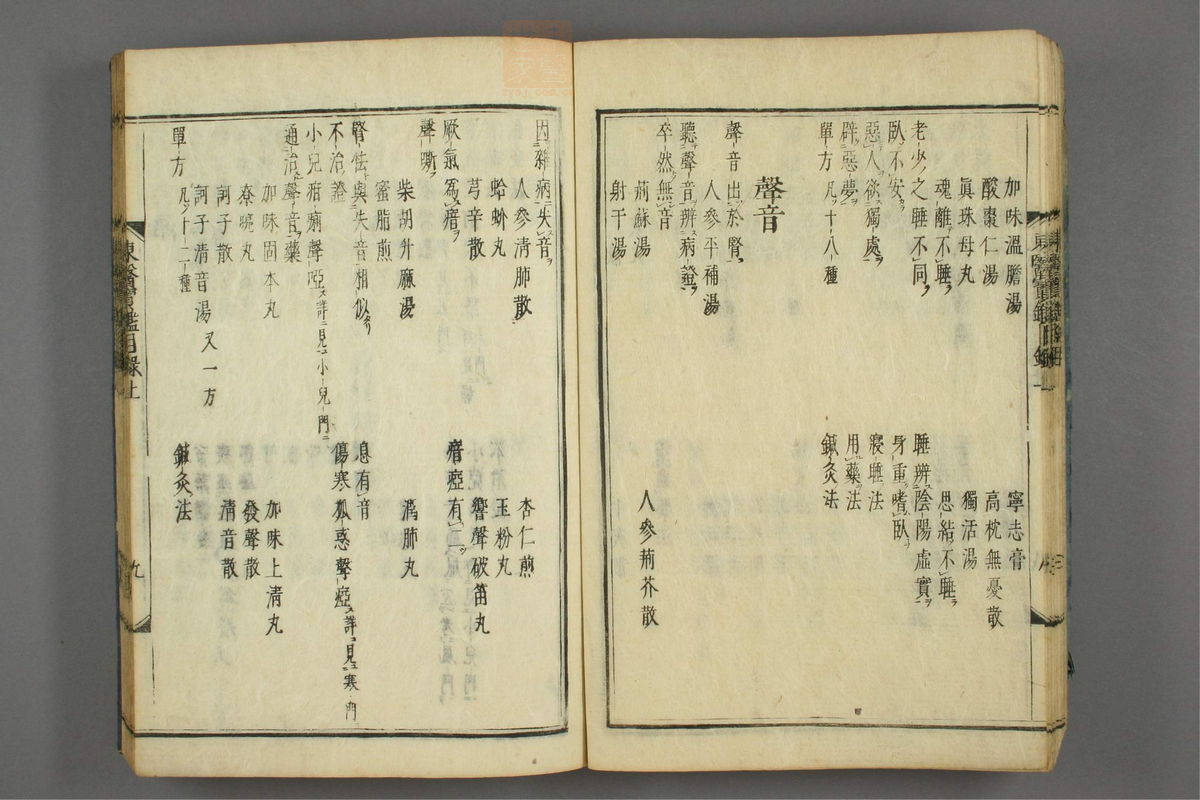 加味溫膽湯
寧志膏
酸棗仁湯
高枕無憂散
眞珠母丸
獨活湯
魂離不睡
思結不睡
老少之睡不同
睡辨陰陽虛實
臥不安
身重嗜臥
惡人欲獨處
寢睡法
辟惡夢
用藥法
單方凡十八種
鍼灸法
聲音
聲音出於腎
人參平補湯
聽聲音辨病證
卒然無音
荊蘇湯
人參荊芥散
射干湯
因雜病失音
人參清肺散
杏仁煎
蛤蚧丸
玉粉丸
芎辛散
響聲破笛丸
厥氣爲瘖
瘖瘂有二
聲嘶
柴胡升麻湯
瀉肺丸
蜜脂煎
腎怯與失音相似
息有音
不治證
傷寒狐惑聲瘂詳見寒門
小兒疳病聲啞詳見小兒門
通治聲音藥
加味固本丸
加味上清丸
發聲散
訶子散
清音散
訶子清音湯又一方
單方凡十二種
鍼灸法
東醫寶鑑目錄上
九